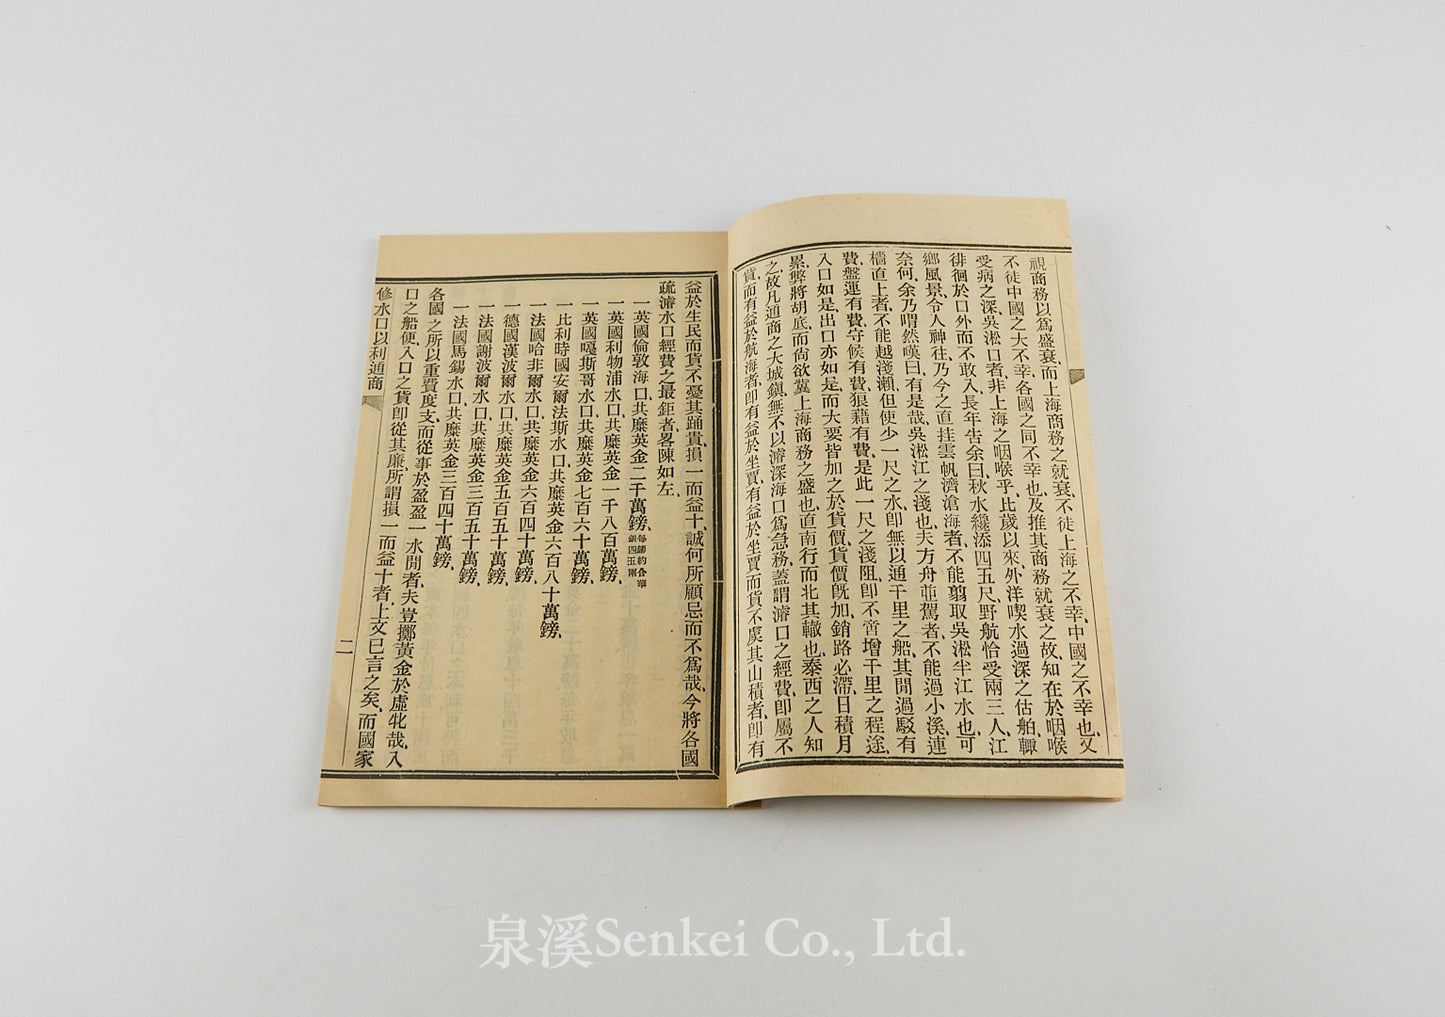 視商務以爲盛衰而上海商務之就衰不徒上海之不幸中國之不幸也又
不徒中國之大不幸各國之同不幸也及推其商務就衰之故知在於咽喉
受病之深吳淞口者非上海之咽喉乎比歲以來外洋喫水過深之估舶輙
徘徊於口外而不敢入長年告余曰秋水纔添四五尺野航恰受兩三人江
鄉風景令人神往乃今之直挂雲帆濟滄海者不能翦取吳淞半江水也可
奈何余乃喟然嘆曰有是哉吳淞江之淺也夫方舟並駕者不能過小溪連
檣直上者不能越淺瀨但使少一尺之水卽無以通千里之船其閒過駁有
費盤運有費守候有費狼藉有費是此一尺之淺阻卽不啻增千里之程途
入口如是出口亦如是而大要皆加之於貨價貨價旣加銷路必滯日積月
累弊將胡底而尙欲冀上海商務之盛也直南行而北其轍也泰西之人知
之故凡通商之大城鎭無不以濬深海口爲急務蓋謂濬口之經費卽屬不
貲而有益於航海者卽有益於坐賈有益於坐賈而貨不虞其山積者卽有
益於生民而貨不憂其踊貴損一而益十誠何所顧忌而不爲哉今將各國
疏濬水口經費之最鉅者畧陳如左
一英國倫敦海口共糜英金二千萬鎊每鎊約合華銀四五兩
一英國利物浦水口共糜英金一千八百萬鎊
一英國嘎斯哥水口共糜英金七百六十萬鎊
一比利時國安爾法斯水口共糜英金六百八十萬鎊
一法國哈非爾水口共糜英金六百四十萬鎊
一德國漢波爾水口共糜英金五百五十萬鎊
一法國謝波爾水口共糜英金三百五十萬鎊
一法國馬錫水口共糜英金三百四十萬鎊
各國之所以重費度支而從事於盈盈一水閒者夫豈擲黃金於虛牝哉入
口之船便入口之貨卽從其廉所謂損一而益十者上文已言之矣而國家
修水口以利通商
二
泉溪Senkei Co., Ltd.